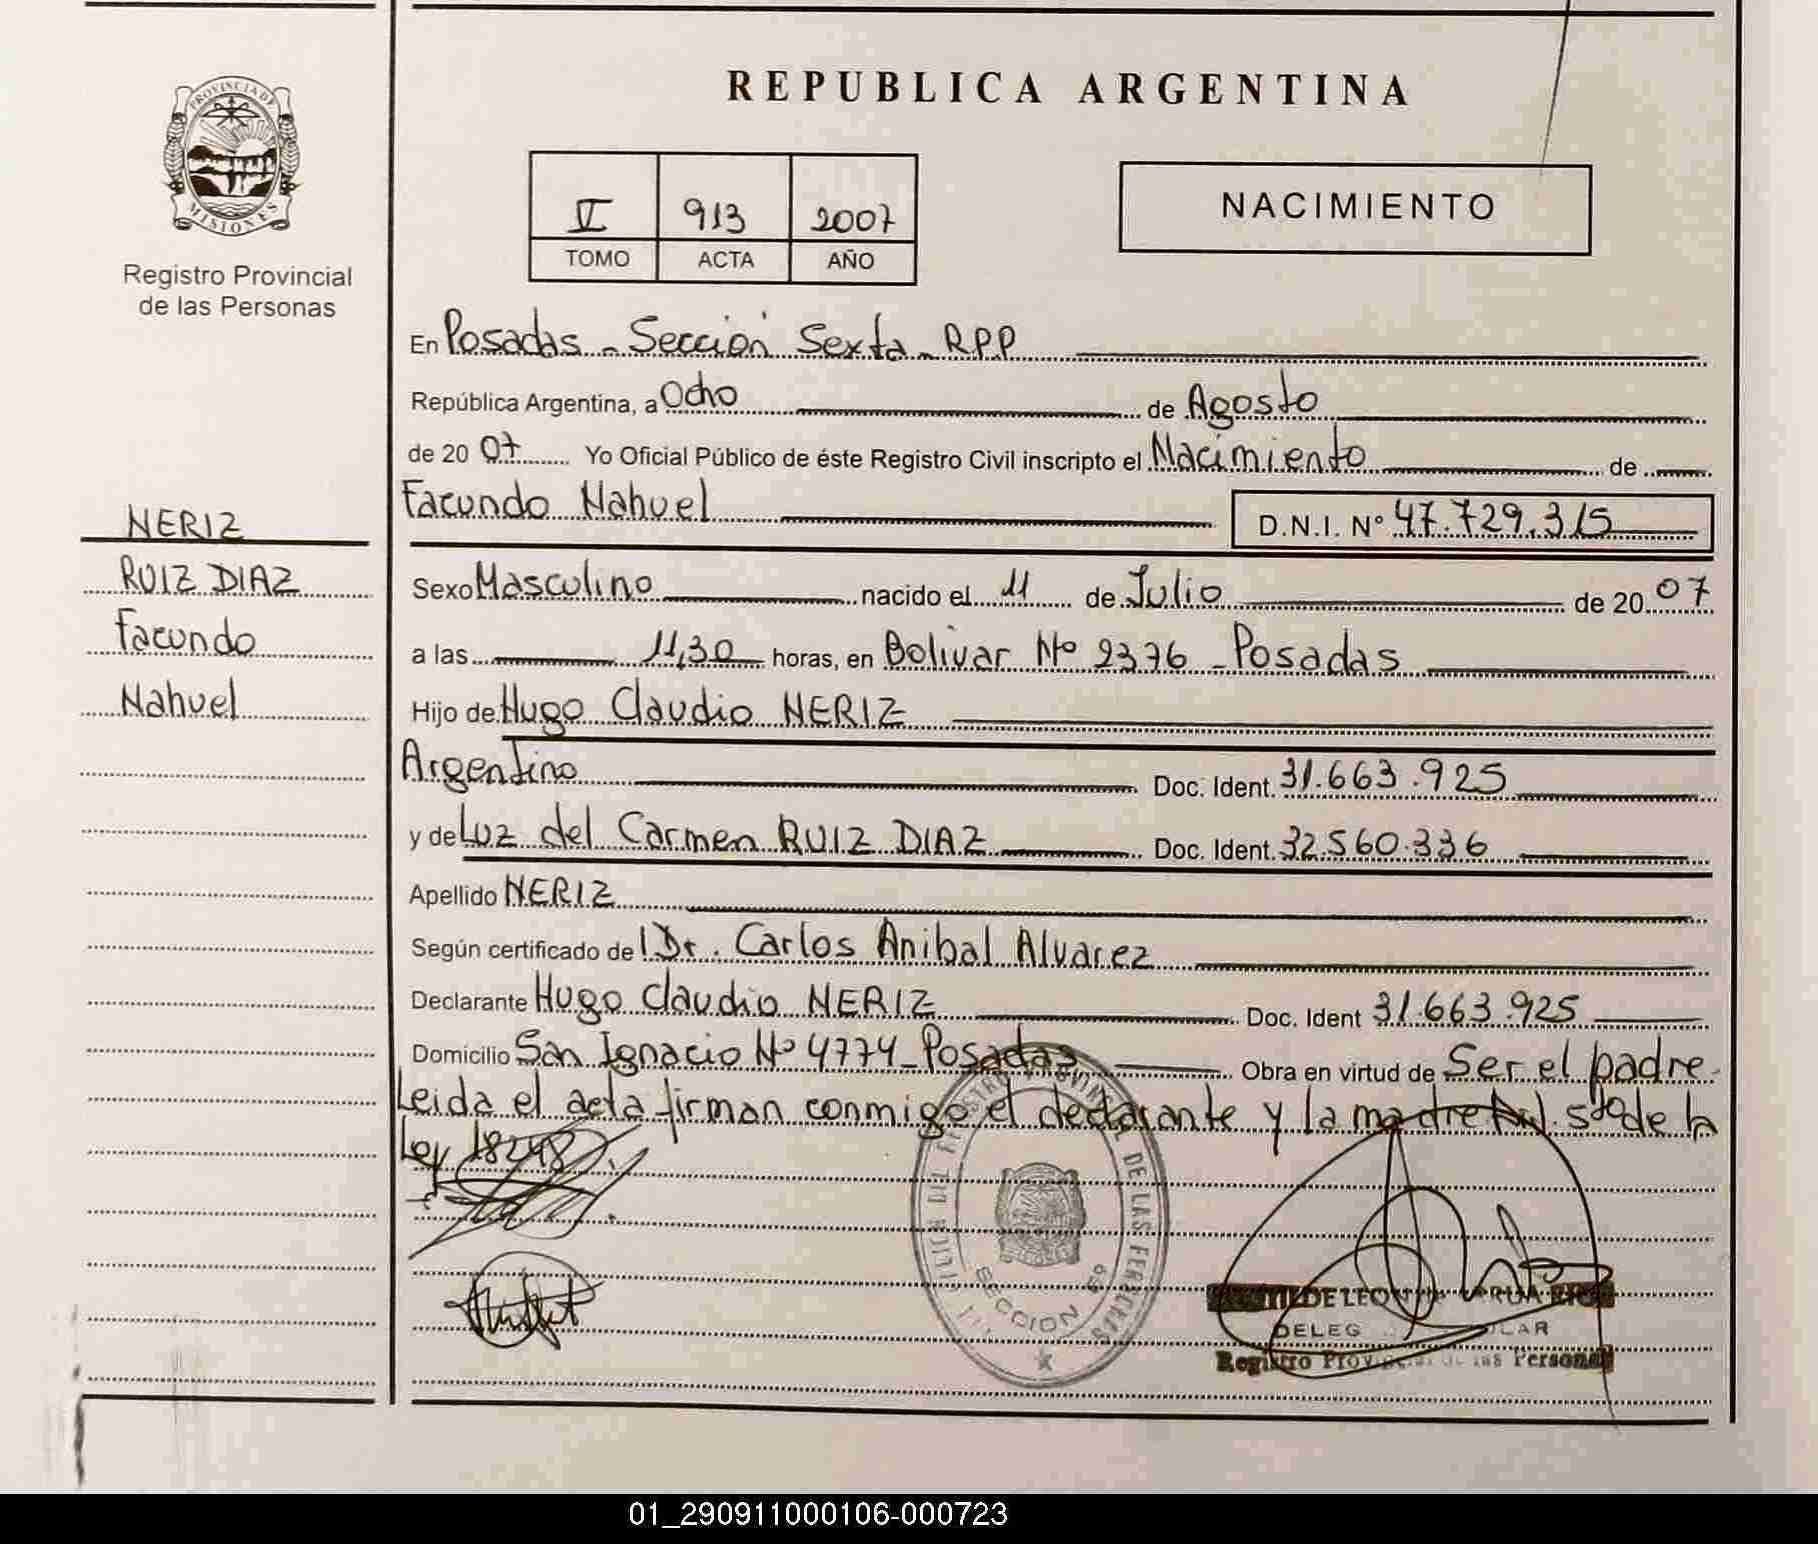 REPUBLICA ARGENTINA
PROVINCIA DE
MISIONES
Registro Provincial
de las Personas
V 913 2007
TOMO ACTA AÑO
NACIMIENTO
En Posadas - Sección Sexta - RPP
República Argentina, a Ocho de Agosto
de 20 07 Yo Oficial Público de éste Registro Civil inscripto el Nacimiento de
Facundo Nahuel D.N.I. N° 47.729.315
NERIZ
RUIZ DIAZ
Facundo
Nahuel
Sexo Masculino nacido el 11 de Julio de 20 07
a las 11,30 horas, en Bolivar Nº 2376 - Posadas
Hijo de Hugo Claudio NERIZ
Argentino Doc. Ident. 31.663.925
y de Luz del Carmen RUIZ DIAZ Doc. Ident. 32.560.336
Apellido NERIZ
Según certificado de l Dr. Carlos Anibal Alvarez
Declarante Hugo Claudio NERIZ Doc. Ident 31.663.925
Domicilio San Ignacio Nº 4774 - Posadas Obra en virtud de Ser el padre.
Leida el acta firman conmigo el declarante y la madre 5to de la
Ley 18248.
DE LAS PERSONAS
SECCION 6º
DELEG
Registro Provincial de las Personas
01_290911000106-000723